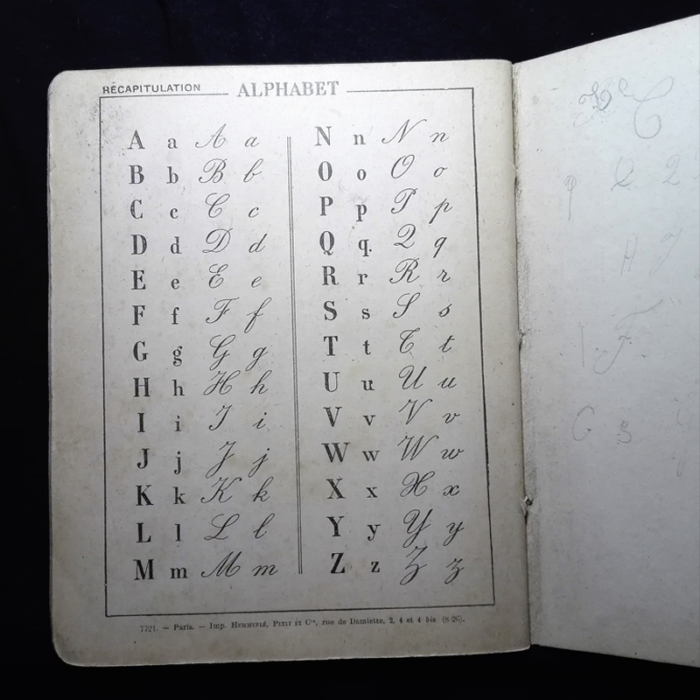 RÉCAPITULATION
ALPHABET
A a A a
B b B b
C c C c
D d D d
E e E e
F f F f
G g G g
H h H h
I i I i
J j J j
K k K k
L l L l
M m M m
N n N n
O o O o
P p P p
Q q Q q
R r R r
S s S s
T t T t
U u U u
V v V v
W w W w
X x X x
Y y Y y
Z z Z z
7721. — Paris. — Imp. HEMMERLÉ, PETIT ET Cie, rue de Damiette, 2, 4 et 4 bis
C
F
G